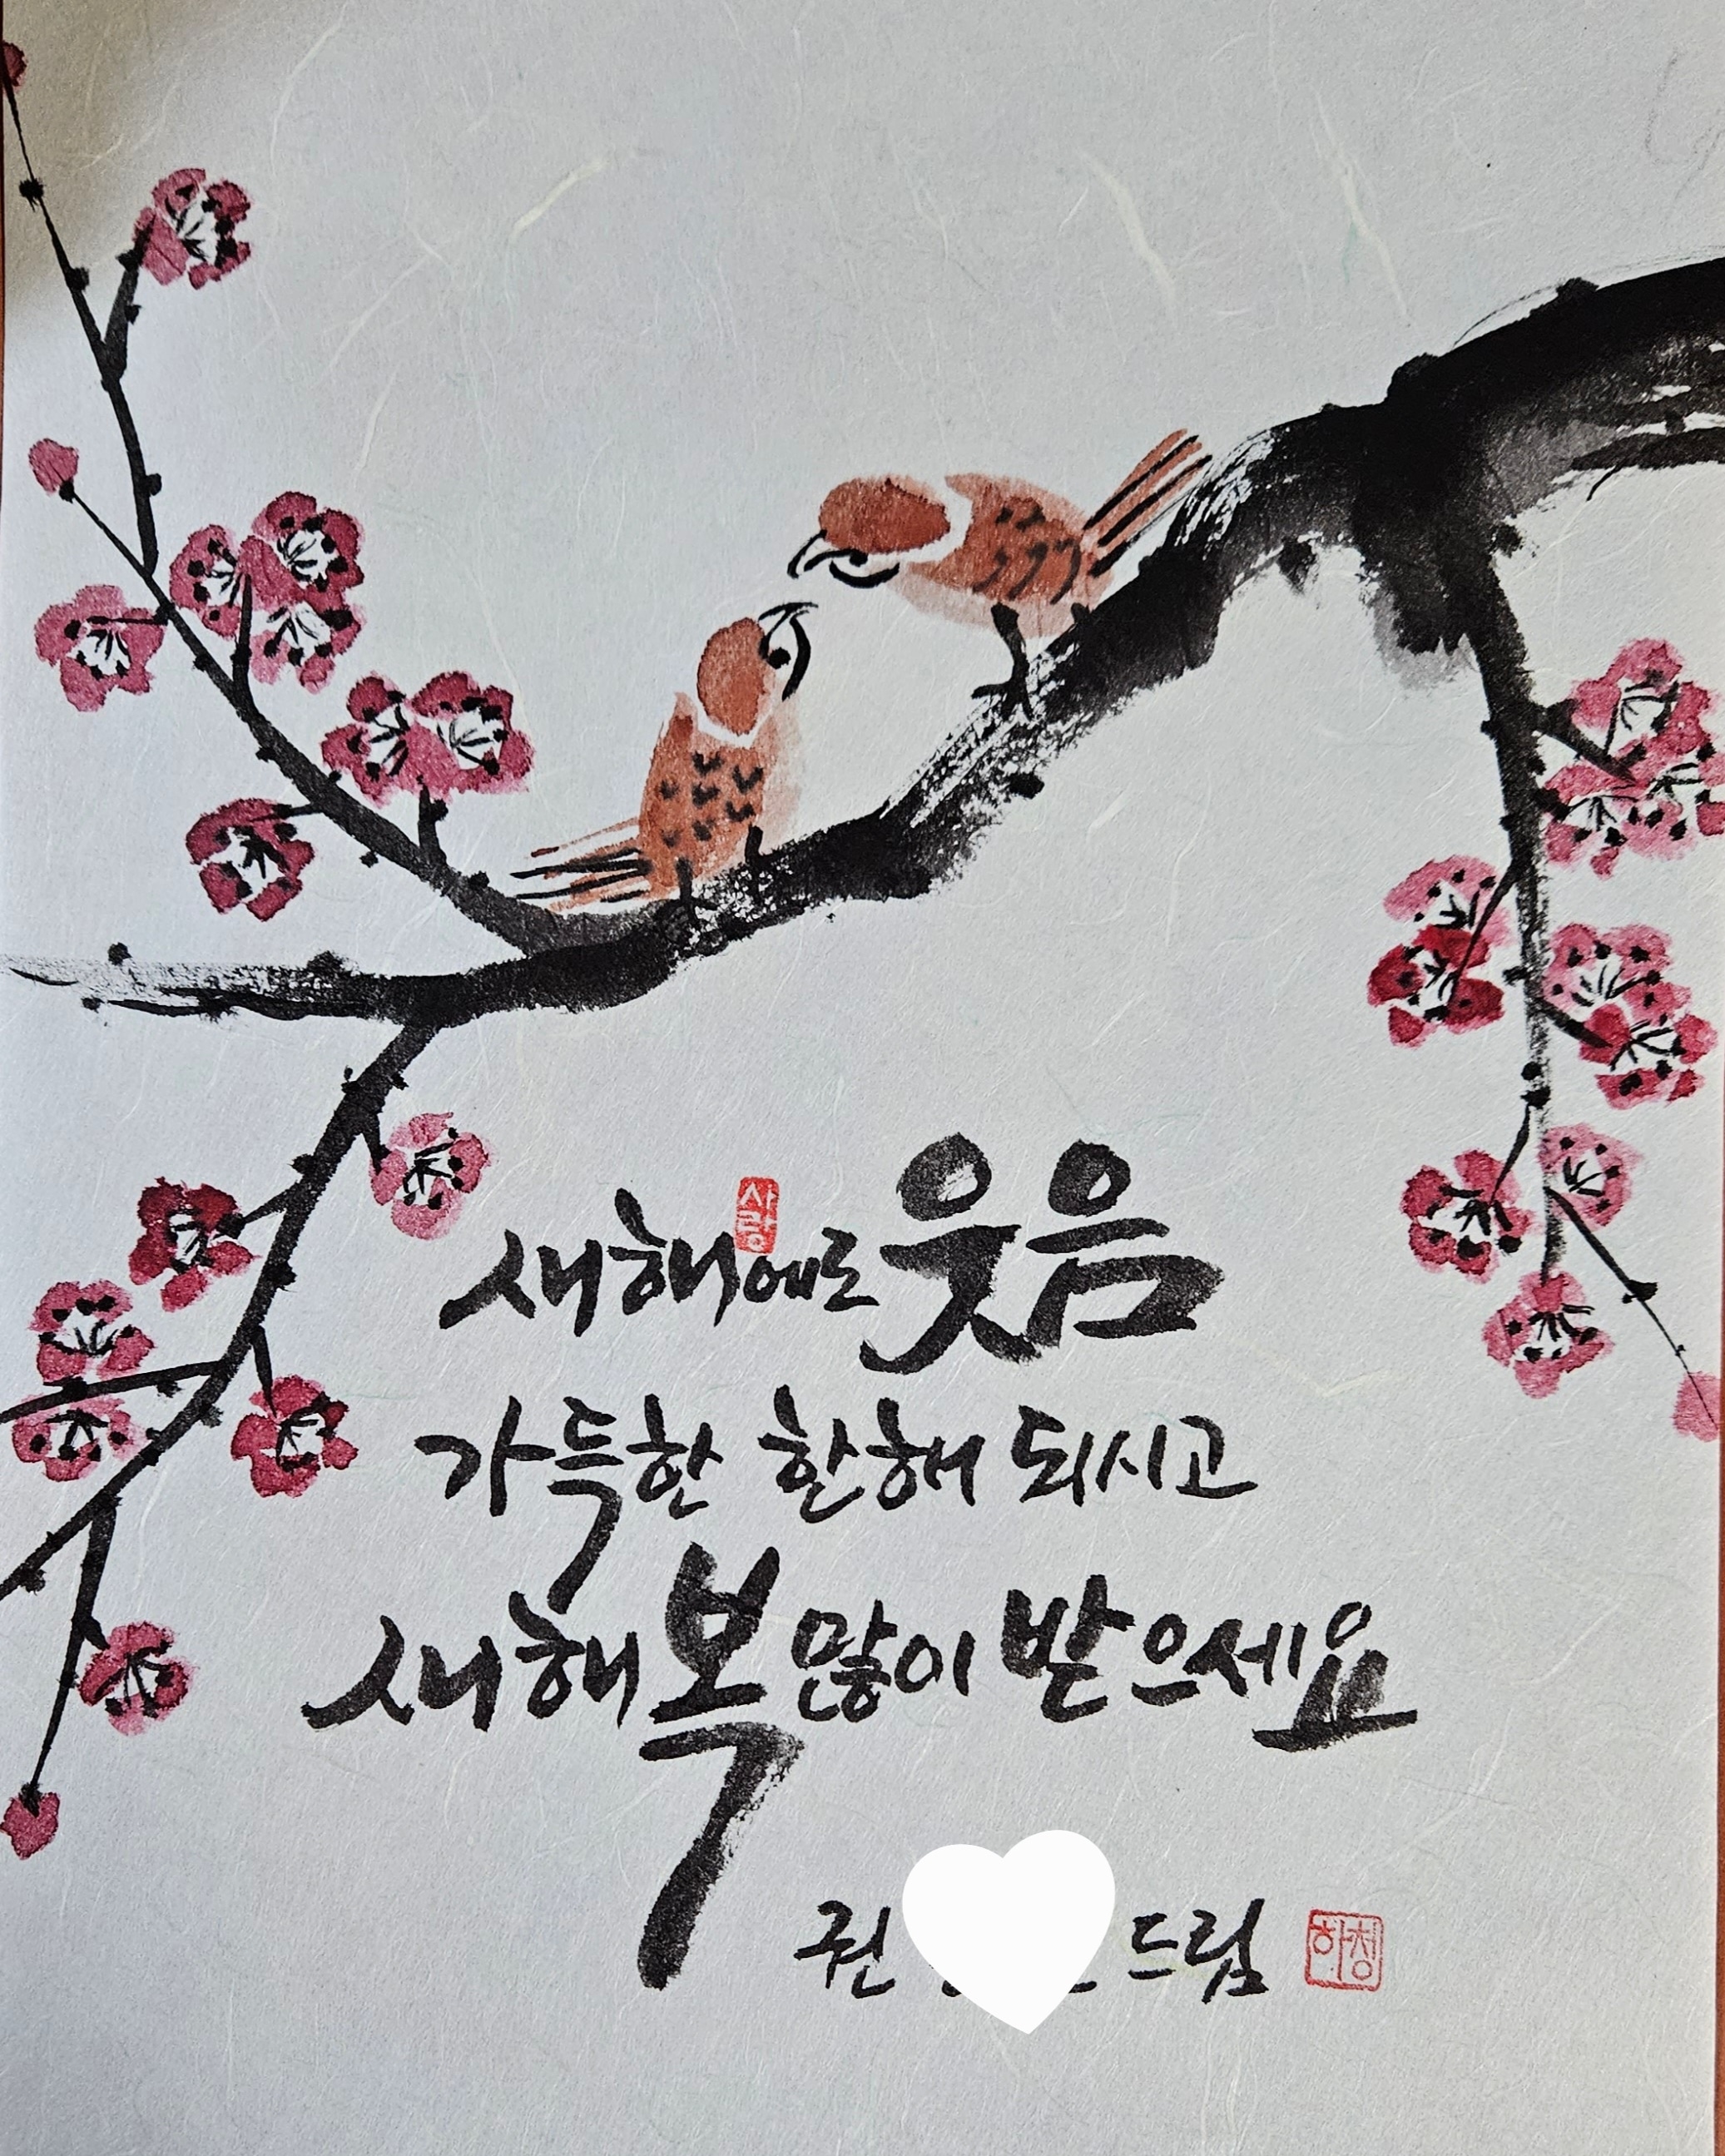 새해에도 웃음
사랑
가득한 한해 되시고
새해 복 많이 받으세요
권 드림
하청